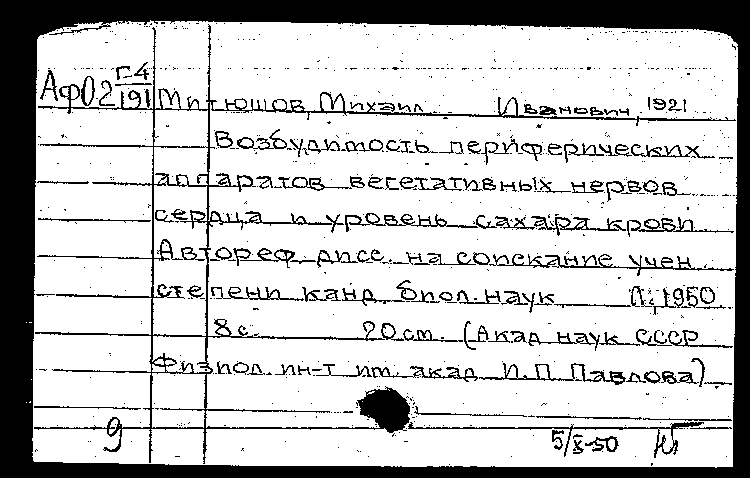 Аф02 Г-4/191 Митюшов, Михаил Иванович, 1921
Возбудимость периферических
аппаратов вегетативных нервов
сердца и уровень сахара крови
Автореф. дисс. на соискание учен.
степени канд. биол. наук. Л., 1950
8 с. 20 см. (Акад. наук СССР
Физиол. ин-т им. акад. И. П. Павлова)
9 5/X-50